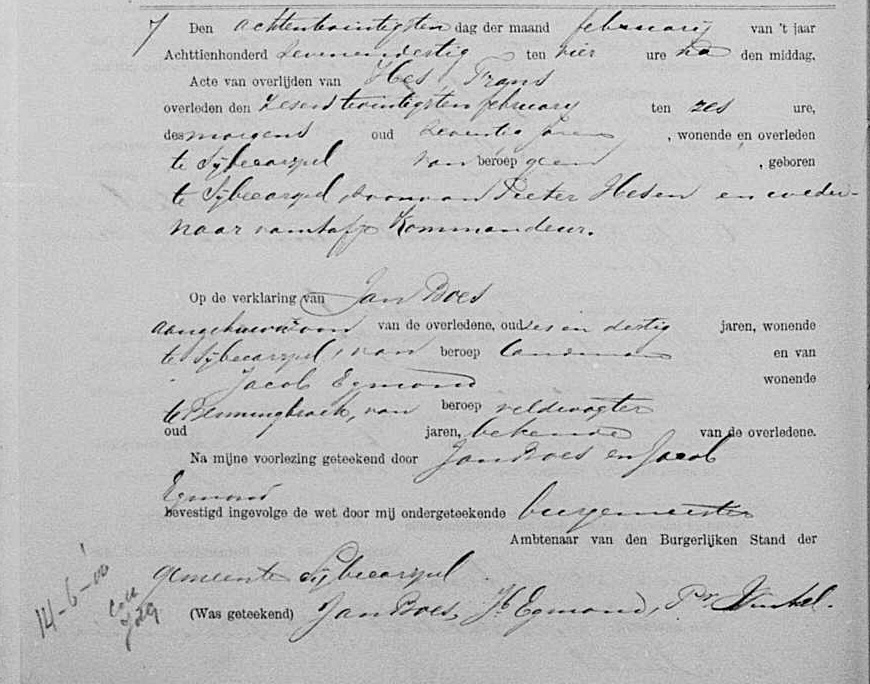 7 Den achtentwintigsten dag der maand february van 't jaar
Achttienhonderd zevenendestig ten vier ure na den middag,
Acte van overlijden van Hes Frans
overleden den zesentwintigsten february ten zes ure,
des morgens oud zeventig jaren, wonende en overleden
te Sijbecarspel van beroep geen, geboren
te Sijbecarspel, zoon van Pieter Hesen en weder-
naar Kommandeur.
Op de verklaring van Jan Boes
aangehuwde zoon van de overledene, oud zes en dertig jaren, wonende
te Sijbecarspel, van beroep landman en van
Jacob Egmond wonende
te Benningbroek, van beroep veldwagter
oud jaren, bekende van de overledene.
Na mijne voorlezing geteekend door Jan Boes en Jacob
Egmond
bevestigd ingevolge de wet door mij ondergeteekende burgemeester
Ambtenaar van den Burgerlijken Stand der
gemeente Sijbecarspel.
(Was geteekend) Jan Boes, Jb Egmond, Pr Winkel.
14-6-'00